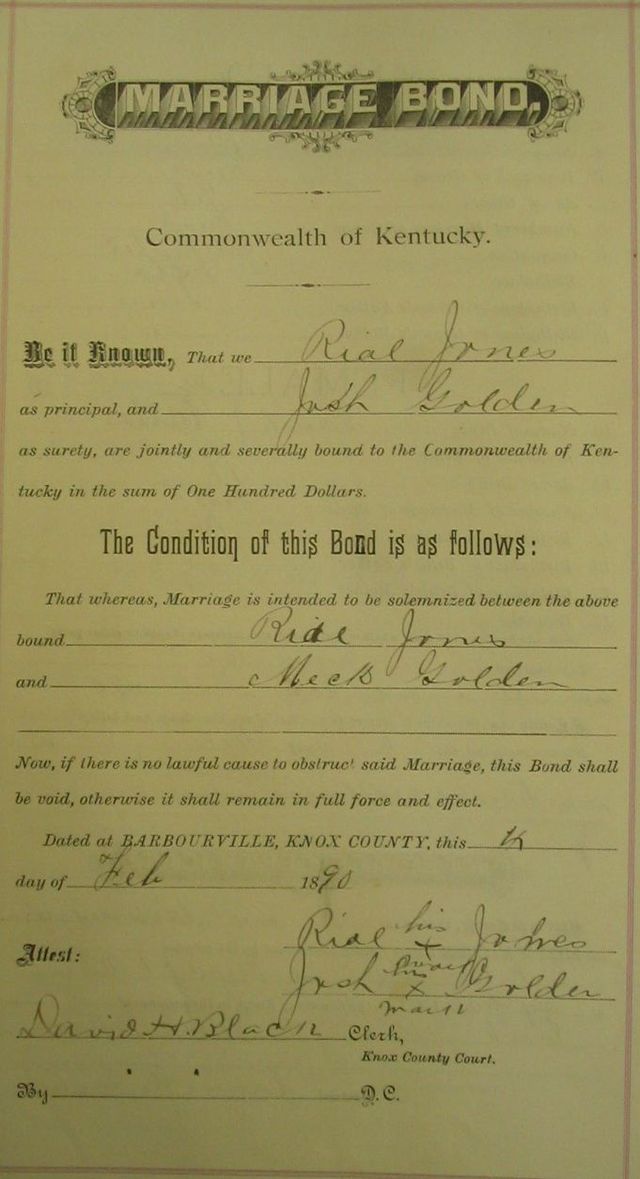 MARRIAGE BOND.
Commonwealth of Kentucky.
Be it Known, That we Rial Jones
as principal, and Josh Golden
as surety, are jointly and severally bound to the Commonwealth of Ken-
tucky in the sum of One Hundred Dollars.
The Condition of this Bond is as follows:
That whereas, Marriage is intended to be solemnized between the above
bound Rial Jones
and Meck Golden
Now, if there is no lawful cause to obstruct said Marriage, this Bond shall
be void, otherwise it shall remain in full force and effect.
Dated at BARBOURVILLE, KNOX COUNTY, this
day of Feb 1890
Rial his x Jones
mark
Attest:
Josh his x Golden
mark
David H. Black Clerk,
Knox County Court.
By D.C.